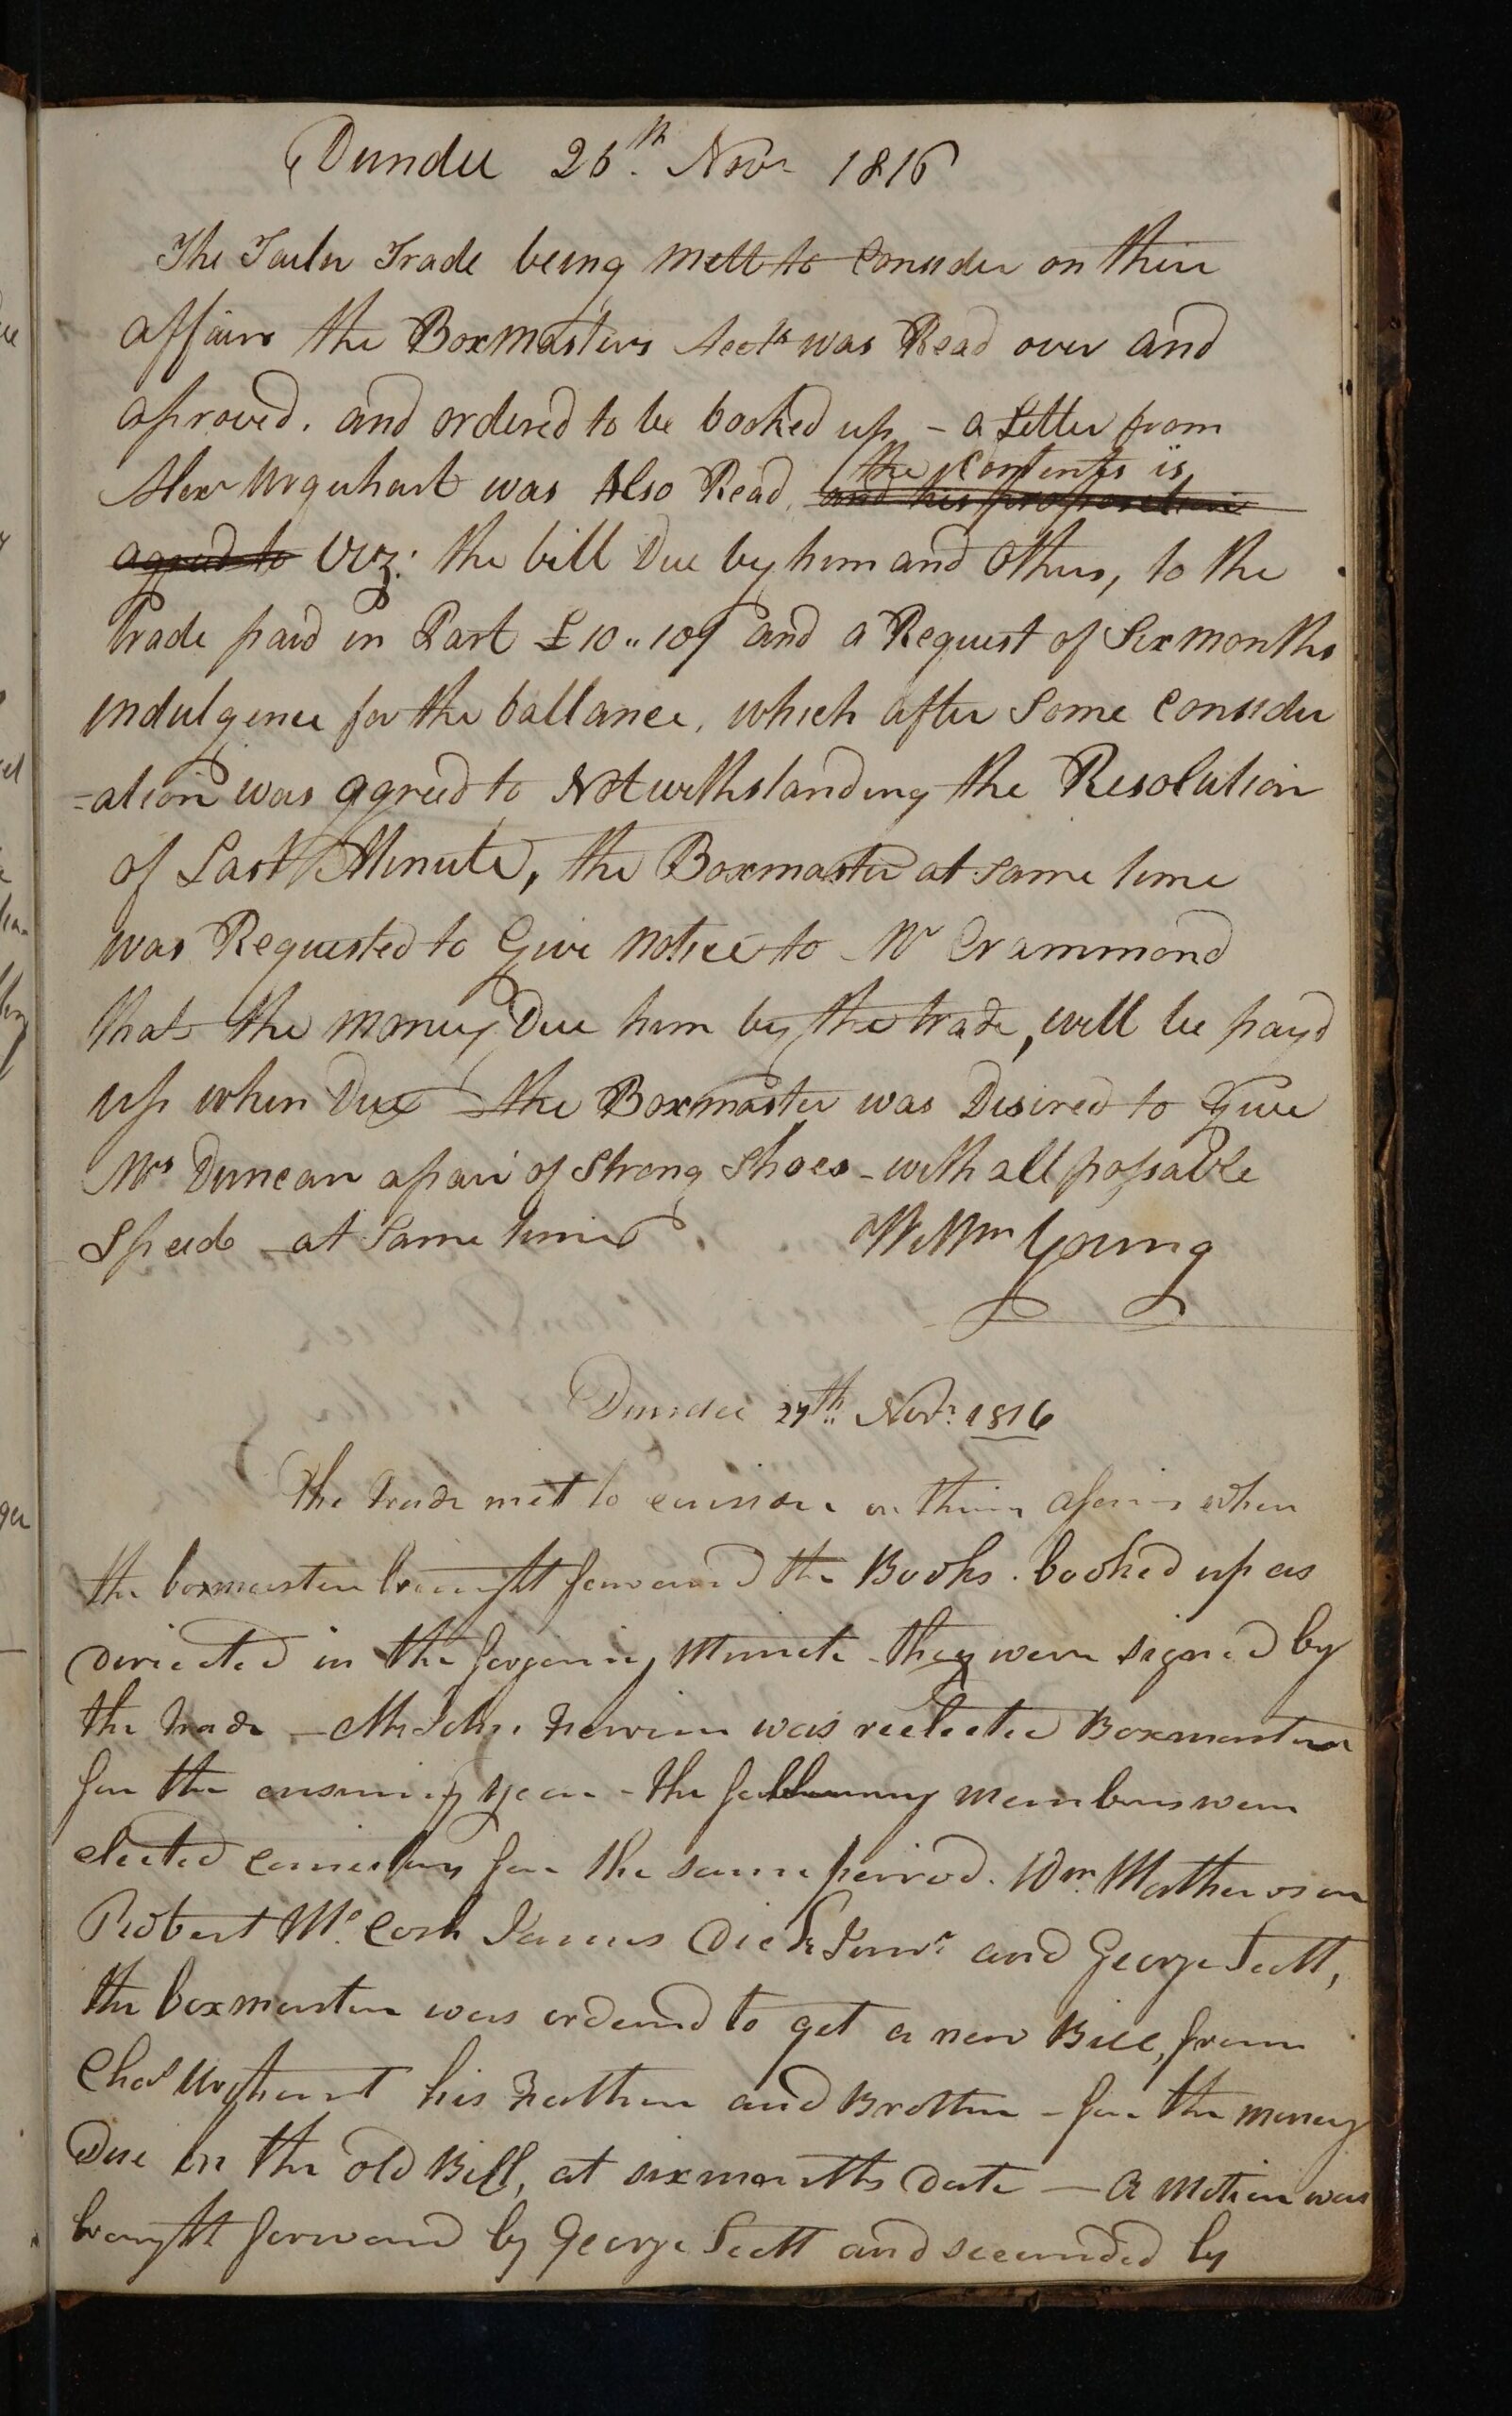 Dundee 26th. Novr 1816
The Tailor Trade being mett to Consider on their
affairs the Boxmasters Acots was Read over and
aproved. and ordered to be booked up - a Letter from
Alexr Urquhart was Also Read, the Contents is, and his proposition
agreed to Viz: the bill Due by him and Others, to the
trade paid in Part £10..10/ and a Request of Six months
indulgence for the ballance, which after Some Consider
-ation was agreed to Notwithstanding the Resolution
of Last Minute, the Boxmaster at same time
was Requested to Give notice to Mr Crammond
that the money Due him by the trade, will be payd
up when Due the Boxmaster was Desired to Give
Mrs Duncan a pair of Strong Shoes - with all possable
Speed at Same time Wm Young
Dundee 27th.. Novr. 1816
The Trade mett to consider on their afairs when
the boxmaster brought forward the Books. booked up as
directed in the forgoing Minute - they were signed by
the trade - Mr John was reelected Boxmaster
for the ensuing year - the following members were
elected for the same period. Wm. Mathewson
Robert Mc.Cosh James Dick Junr and George Scott,
the boxmaster was ordered to get a new Bill, from
Chas Urqhart his Father and Brother - for the money
Due on the old Bill, at six months date - A motion was
brought forward by George Scott and seconded by